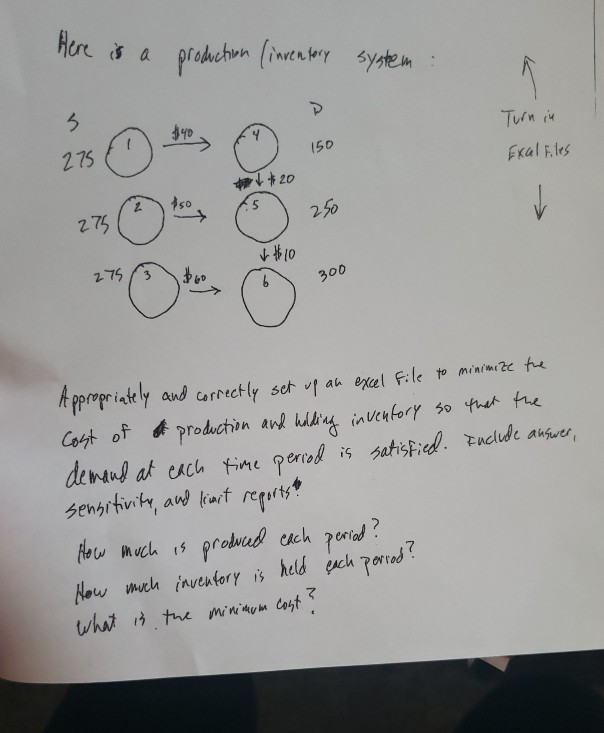 Here is a production/inventory system :
S D
Turn in
Excel Files
275 1 $40 4 150
$20
275 2 $50 5 250
$10
275 3 $60 6 300
Appropriately and correctly set up an excel file to minimize the
cost of production and holding inventory so that the
demand at each time period is satisfied. Include answer,
sensitivity, and limit reports.
How much is produced each period?
How much inventory is held each period?
What is the minimum cost?